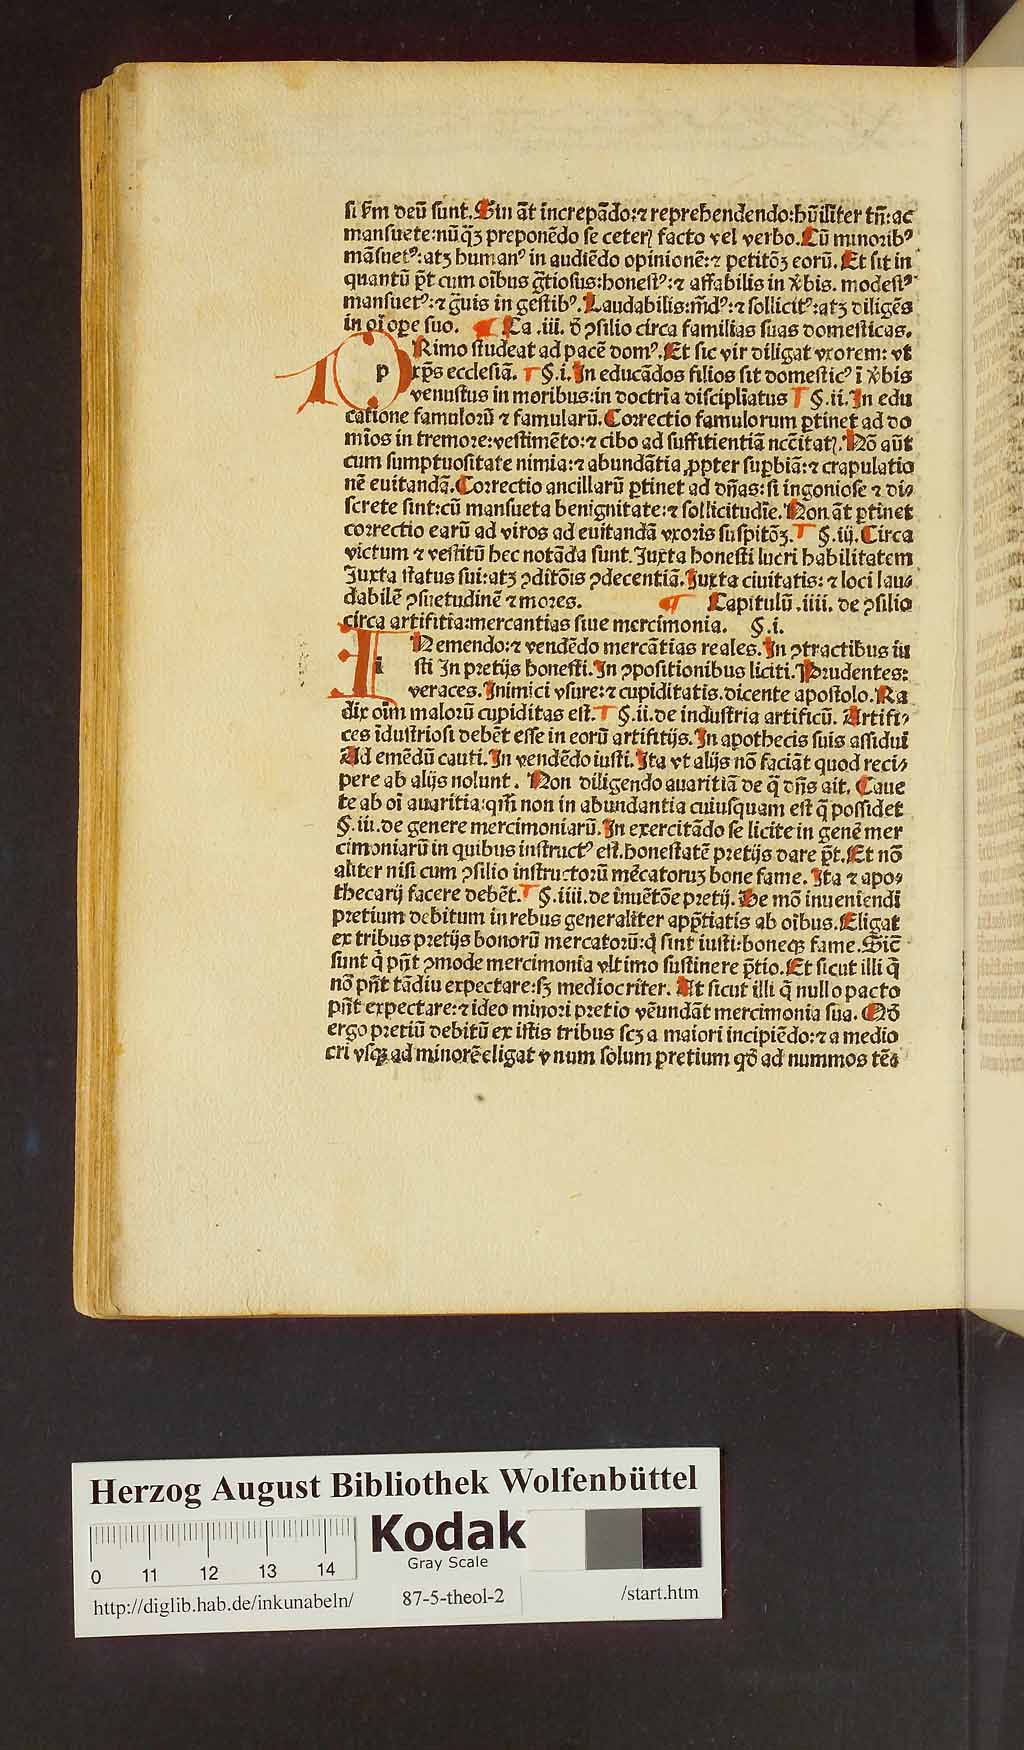 si ẜm deū sunt. Sin āt increpādo:⁊ reprehendendo:hūiliter tn̄:ac
mansuete:nūq̄ꝫ preponēdo se ceterꝭ facto vel verbo. Cū minoribꝰ
māsuetꝰ:atꝫ humanꝰ in audiēdo opinionē:⁊ petitōꝫ eorū. Et sit in
quantū p̄t cum oībus ḡtiosus:honestꝰ:⁊ affabilis in v̾bis. modestꝰ
mansuetꝰ:⁊ ḡuis in gestibꝰ. Laudabilis:m̄dꝰ:⁊ sollicitꝰ:atꝫ diligēs
in oī oꝑe suo. ¶ Ca .iii. ō ꝯsilio circa familias suas domesticas.
pRimo studeat ad pacē domꝰ. Et sic vir diligat vxorem: vt
xp̄s ecclesiā. §.i. In educādos filios sit domesticꝰ ī v̾bis
venustus in moribus:in doctrīa discipliatus §.ii. In edu
catione famulorū ⁊ famularū. Correctio famulorum ꝑtinet ad do
mīos in tremore:vestimēto:⁊ cibo ad suffitientiā ncēitatꝭ. Nō aūt
cum sumptuositate nimia:⁊ abundātia ꝓpter suꝑbiā:⁊ crapulatio
nē euitandā. Correctio ancillarū ꝑtinet ad dn̄as: si ingoniose ⁊ di⸗
screte sint:cū mansueta benignitate:⁊ sollicitudīe. Non āt ꝑtinet
correctio earū ad viros ad euitandā vxoris suspitōꝫ. §.iij. Circa
victum ⁊ vestitū hec notāda sunt. Juxta honesti lucri habilitatem
Juxta status sui:atꝫ ꝯditōis ꝯdecentiā. Juxta ciuitatis: ⁊ loci lau⸗
dabilē ꝯsuetudinē ⁊ mores. ¶ Capitulū .iiii. de ꝯsilio
circa artifitia:mercantias siue mercimonia. §.i.
iNemendo:⁊ vendēdo mercātias reales. In ꝯtractibus iu
sti In pretijs honesti. In ꝯpositionibus liciti. Prudentes:
veraces. Inimici vsure:⁊ cupiditatis. dicente apostolo. Ra
dix oīm malorū cupiditas est. §.ii. de industria artificū. Artifi⸗
ces īdustriosi debēt esse in eorū artifitijs. In apothecis suis assidui
Ad emēdū cauti. In vendēdo iusti. Ita vt alijs nō faciāt quod reci⸗
pere ab alijs nolunt. Non diligendo auaritiā de q̄ dn̄s ait. Caue
te ab oī auaritia:qm̄ non in abundantia cuiusquam est q̄ possidet
§.iii. de genere mercimoniarū. In exercitādo se licite in genē mer
cimoniarū in quibus instructꝰ est. honestatē pretijs dare p̄t. Et nō
aliter nisi cum ꝯsilio instructorū mēcatoruꝫ bone fame. Ita ⁊ apo⸗
thecarij facere debēt. §.iiii. de inuētōe pretij. De mō inueniendi
pretium debitum in rebus generaliter app̄tiatis ab oībus. Eligat
ex tribus pretijs bonorū mercatorū:q̇ sint iusti:boneqꝫ fame. Sic̄
sunt q̄ pn̄t ꝯmode mercimonia vltimo sustinere p̄tio. Et sicut illi q̄
nō pn̄t tādiu expectare:sꝫ mediocriter. At sicut illi q̄ nullo pacto
pn̄t expectare:⁊ ideo minori pretio vēundāt mercimonia sua. Nō
ergo pretiū debitū ex istis tribus scꝫ a maiori incipiēdo:⁊ a medio
cri vsqꝫ ad minorē eligat vnum solum pretium qō ad nummos tēa
Herzog August Bibliothek Wolfenbüttel
0 11 12 13 14
Kodak
Gray Scale
http://diglib.hab.de/inkunabeln/ 87-5-theol-2 /start.htm